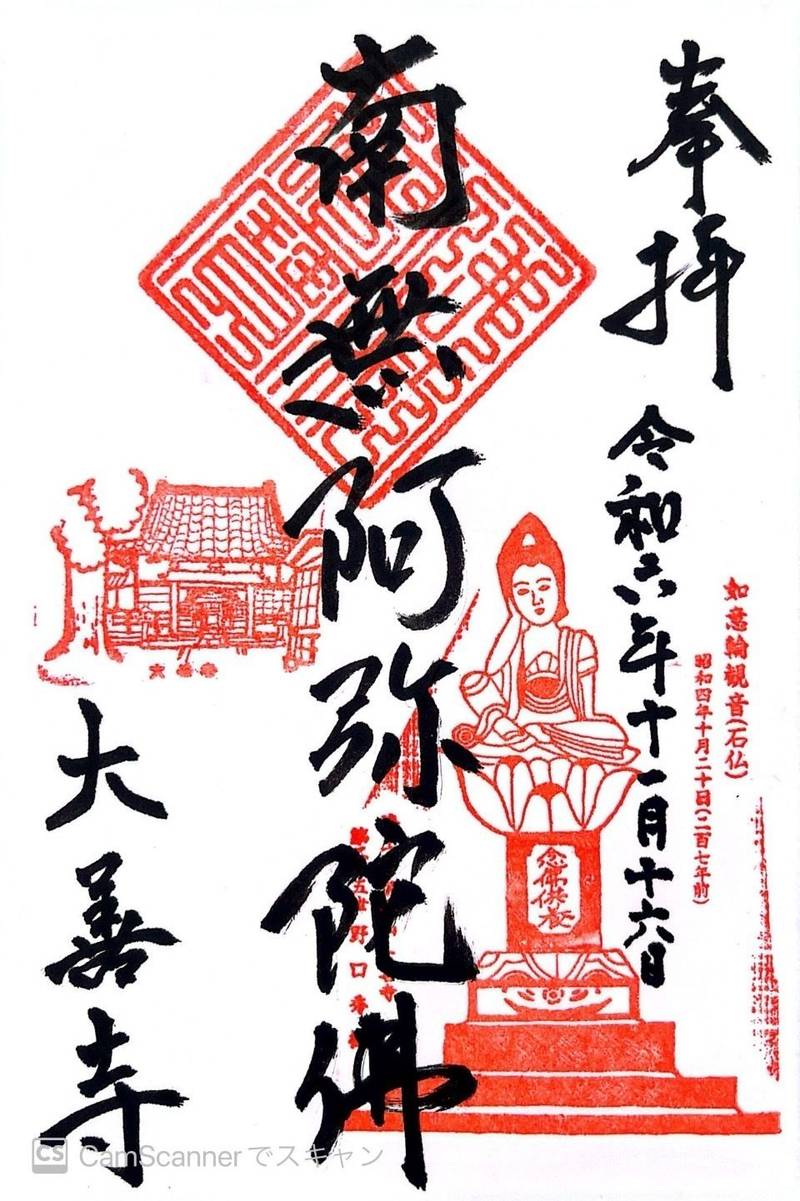 奉拝
令和六年十一月十六日
如意輪観音(石仏)
昭和四年十月二十日(二百七年前)
南無阿弥陀佛
念佛供養
野口
大善寺
大善寺
CS CamScannerでスキャン